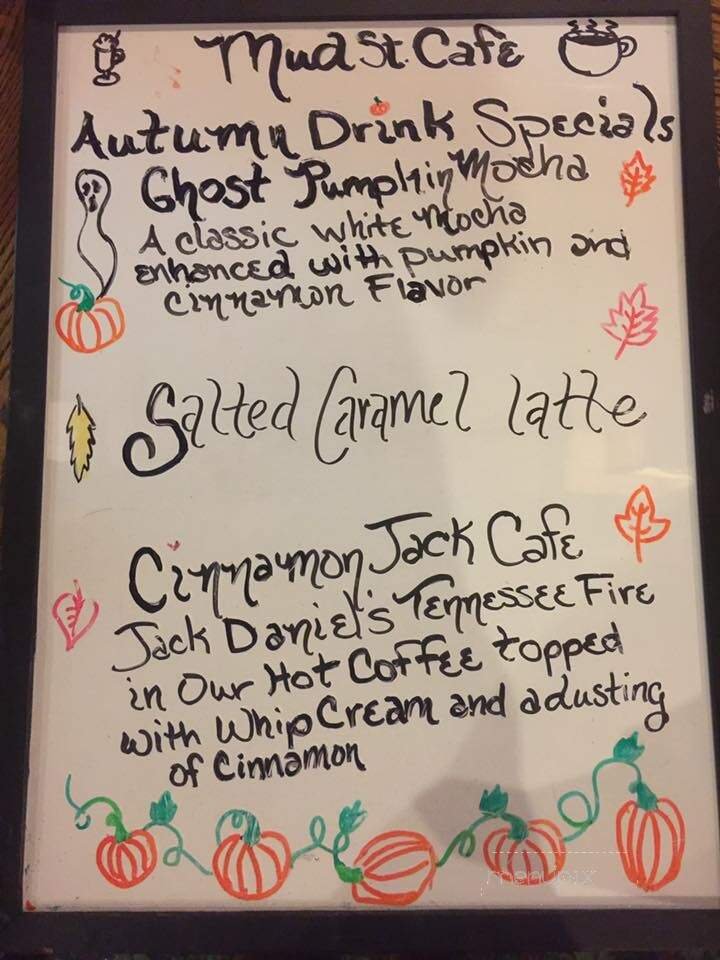 Mud St. Cafe
Autumn Drink Specials
Ghost Pumpkin Mocha
A classic white Mocha
enhanced with pumpkin and
Cinnamon Flavor
Salted Caramel latte
Cinnamon Jack Cafe
Jack Daniel's Tennessee Fire
in Our Hot Coffee topped
with Whip Cream and a dusting
of Cinnamon
menupix